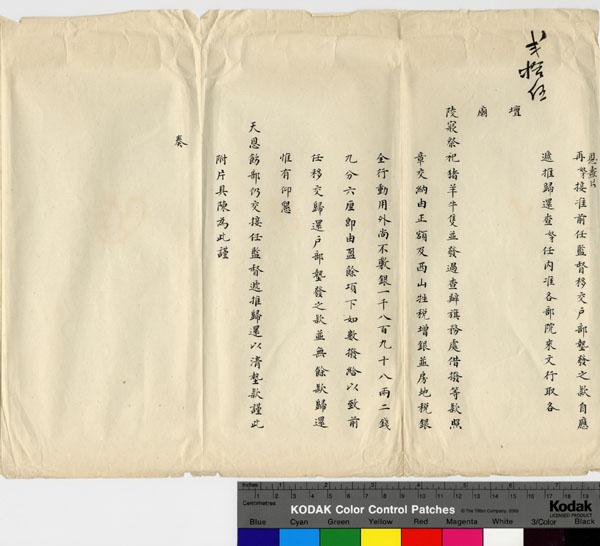 弍拾伍
再奴才接准前任監督移交戶部墊發之款自應
遞推歸還查奴才任內准各部院來文行取各
壇
廟
陵寢祭祀猪羊牛隻並發過查辦旗務處借撥等款照
章交納由正額及西山牲稅增銀並房地稅銀
全行動用外尚不敷銀一千八百九十八兩二錢
九分六厘卽由盈餘項下如數撥給以致前
任移交歸還戶部墊發之款並無餘款歸還
惟有仰懇
天恩飭部仍交接任監督遞推歸還以清墊款謹此
附片具陳為此謹
奏
Inches
Centimetres
KODAK Color Control Patches
© The Tiffen Company, 2000
Kodak
LICENSED PRODUCT
Blue Cyan Green Yellow Red Magenta White 3/Color Black